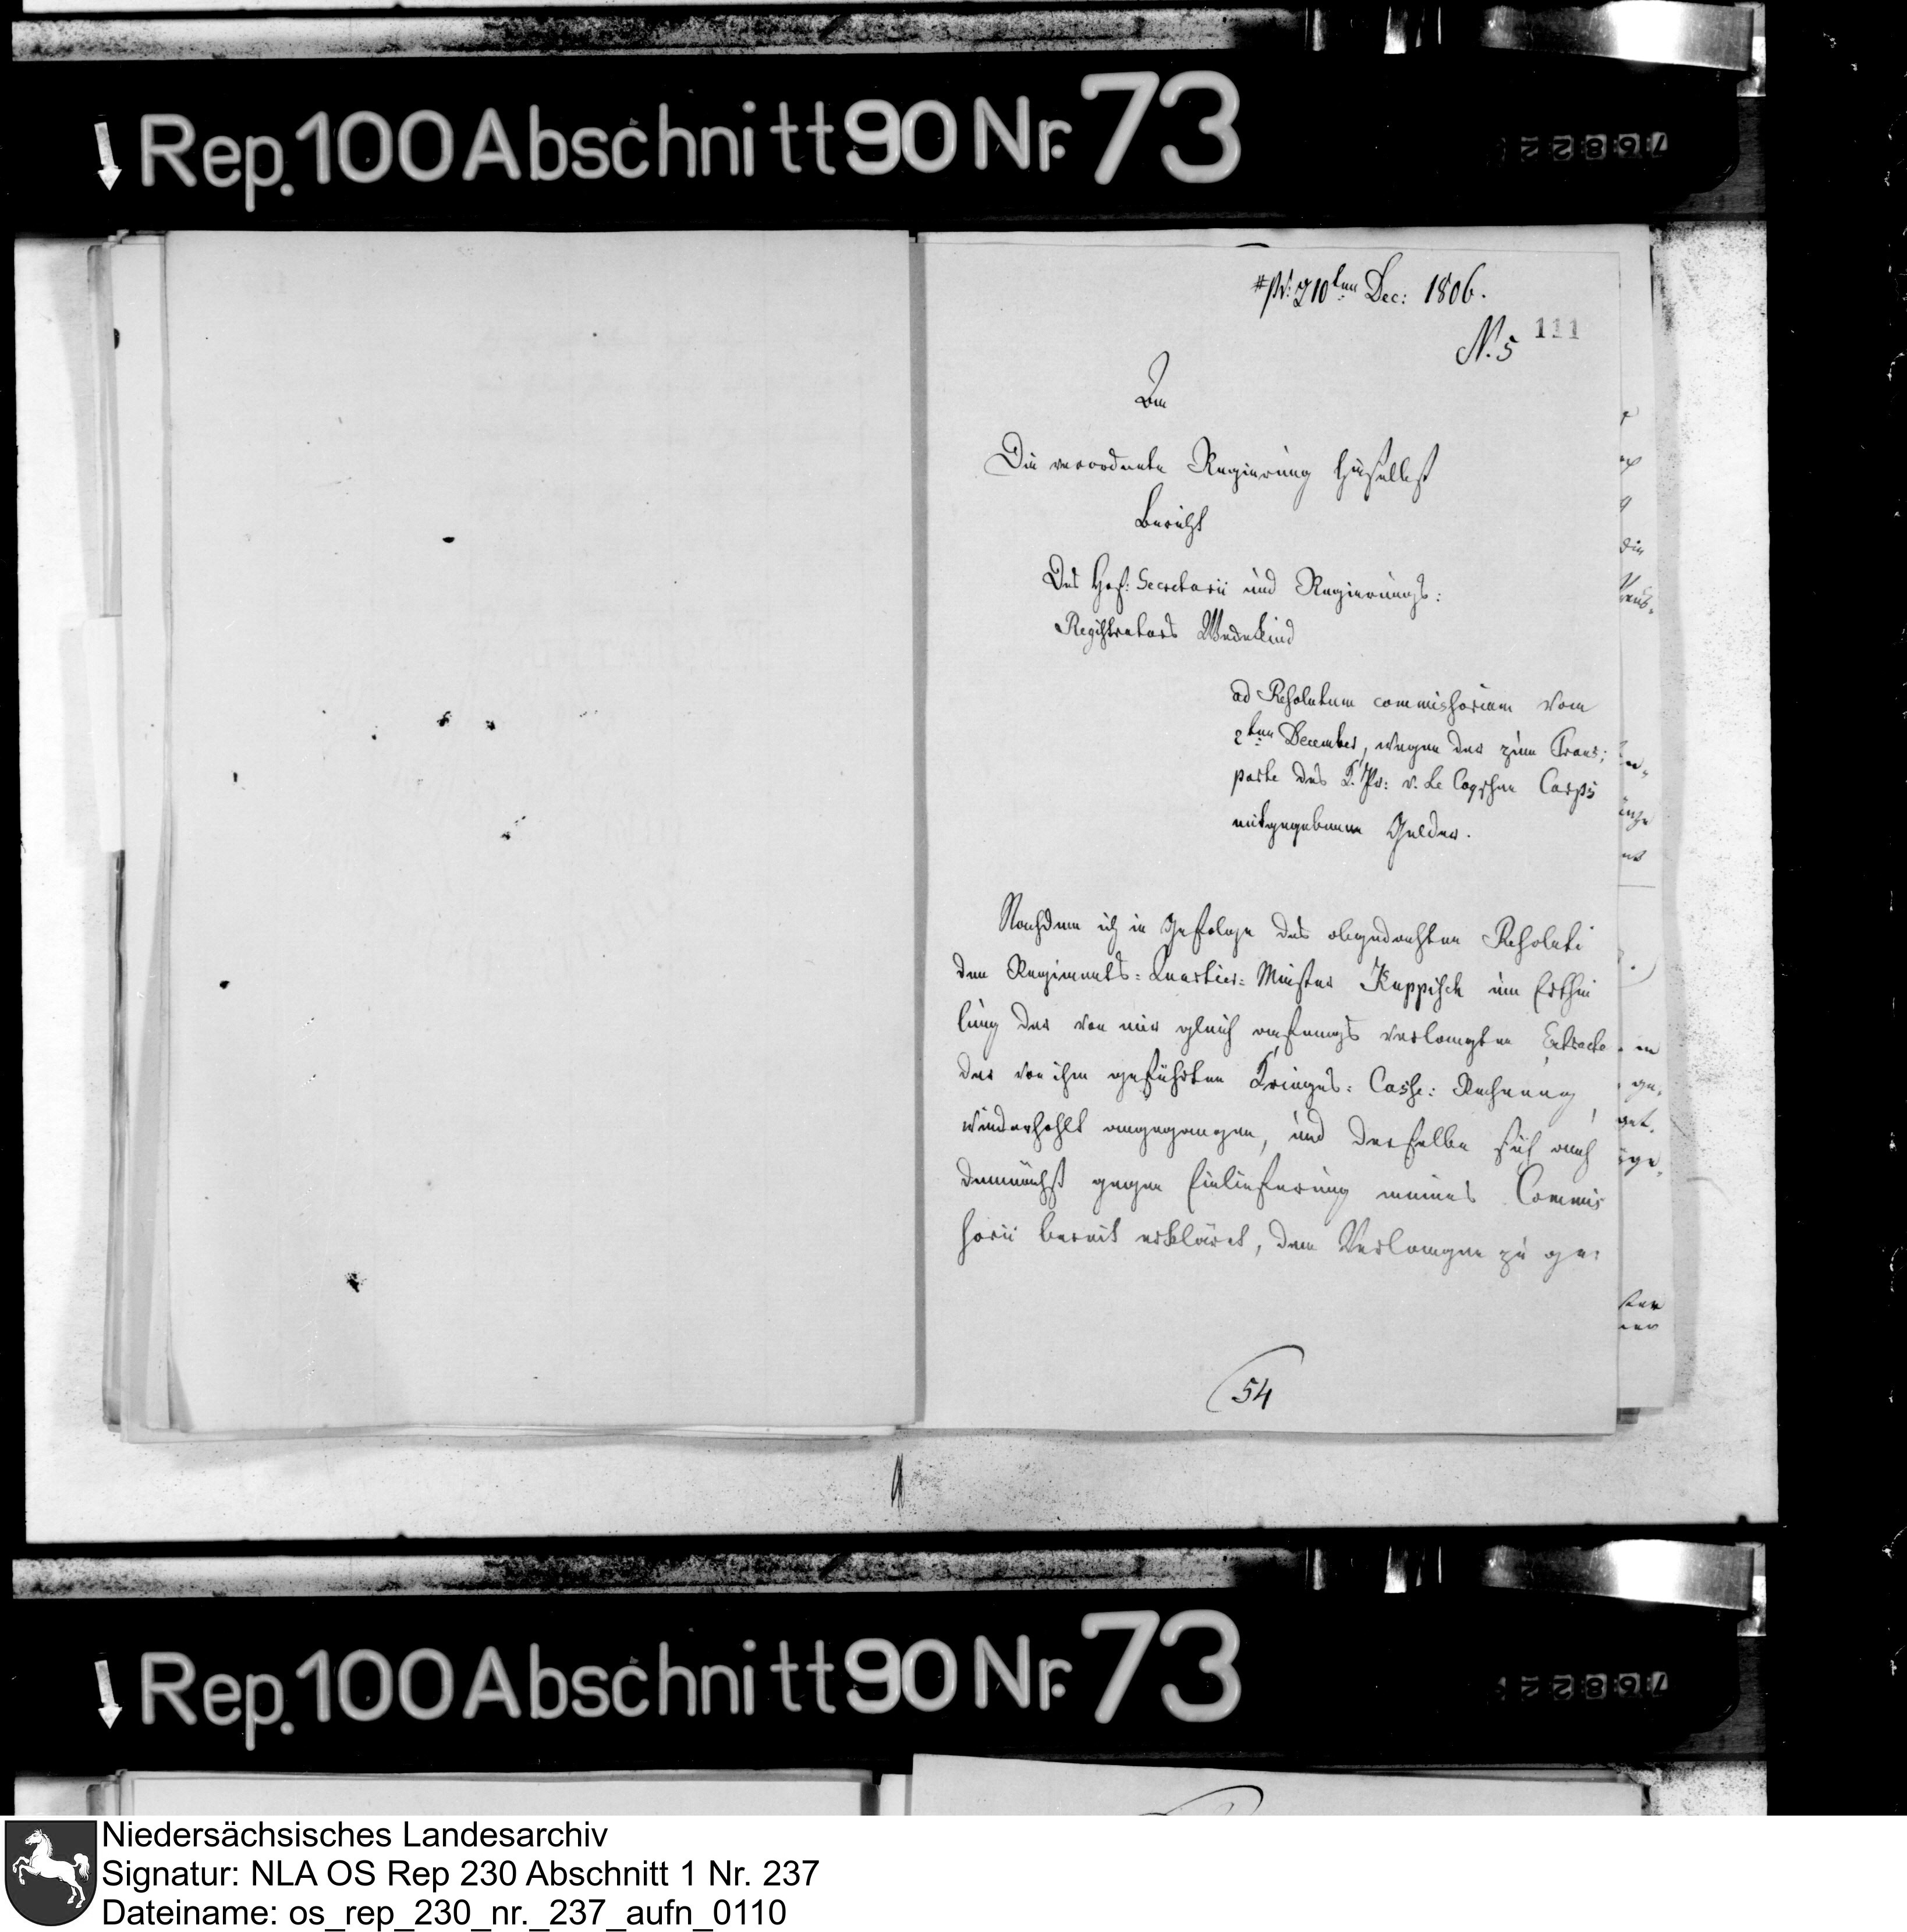 Rep. 100 Abschnitt 90 Nr. 73
pr: d 10ten Dec: 1806.
N. 5
111
An
Die verordnete Regierung hieselbst
Bericht
Des Hof: Secretarii und Regierungs:
Registrators Wedekind
ad Resolutum commissorium vom
2ten December, wegen der zum Trans:
porte des K. Pr: v. Le Coqschen Corps
mitgegebenen Gelder.
Nachdem ich in Gefolge des obgedachten Resoluti
den Regiments: Quartier: Meister Keppisch um Erthei
lung der von mir gleich anfangs verlangten Extracte
der von ihm geführten Krieges: Casse: Rechnung,
wiederhohlt angegangen, und derselbe sich auch
demnächst gegen Einlieferung meines Commis
sorii bereit erkläret, dem Verlangen zu ge:
54
Rep. 100 Abschnitt 90 Nr. 73
Niedersächsisches Landesarchiv
Signatur: NLA OS Rep 230 Abschnitt 1 Nr. 237
Dateiname: os_rep_230_nr._237_aufn_0110